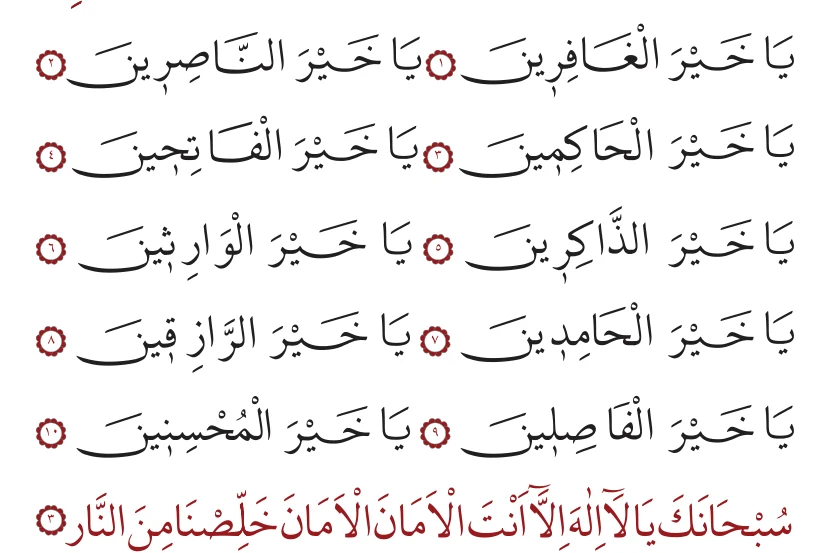 يَا خَيْرَ الْغَافِرِينَ ١ يَا خَيْرَ النَّاصِرِينَ ٢
يَا خَيْرَ الْحَاكِمِينَ ٣ يَا خَيْرَ الْفَاتِحِينَ ٤
يَا خَيْرَ الذَّاكِرِينَ ٥ يَا خَيْرَ الْوَارِثِينَ ٦
يَا خَيْرَ الْحَامِدِينَ ٧ يَا خَيْرَ الرَّازِقِينَ ٨
يَا خَيْرَ الْفَاصِلِينَ ٩ يَا خَيْرَ الْمُحْسِنِينَ ١٠
سُبْحَانَكَ يَا لَآ اِلٰهَ اِلَّآ اَنْتَ الْاَمَانَ الْاَمَانَ خَلِّصْنَا مِنَ النَّارِ ٣